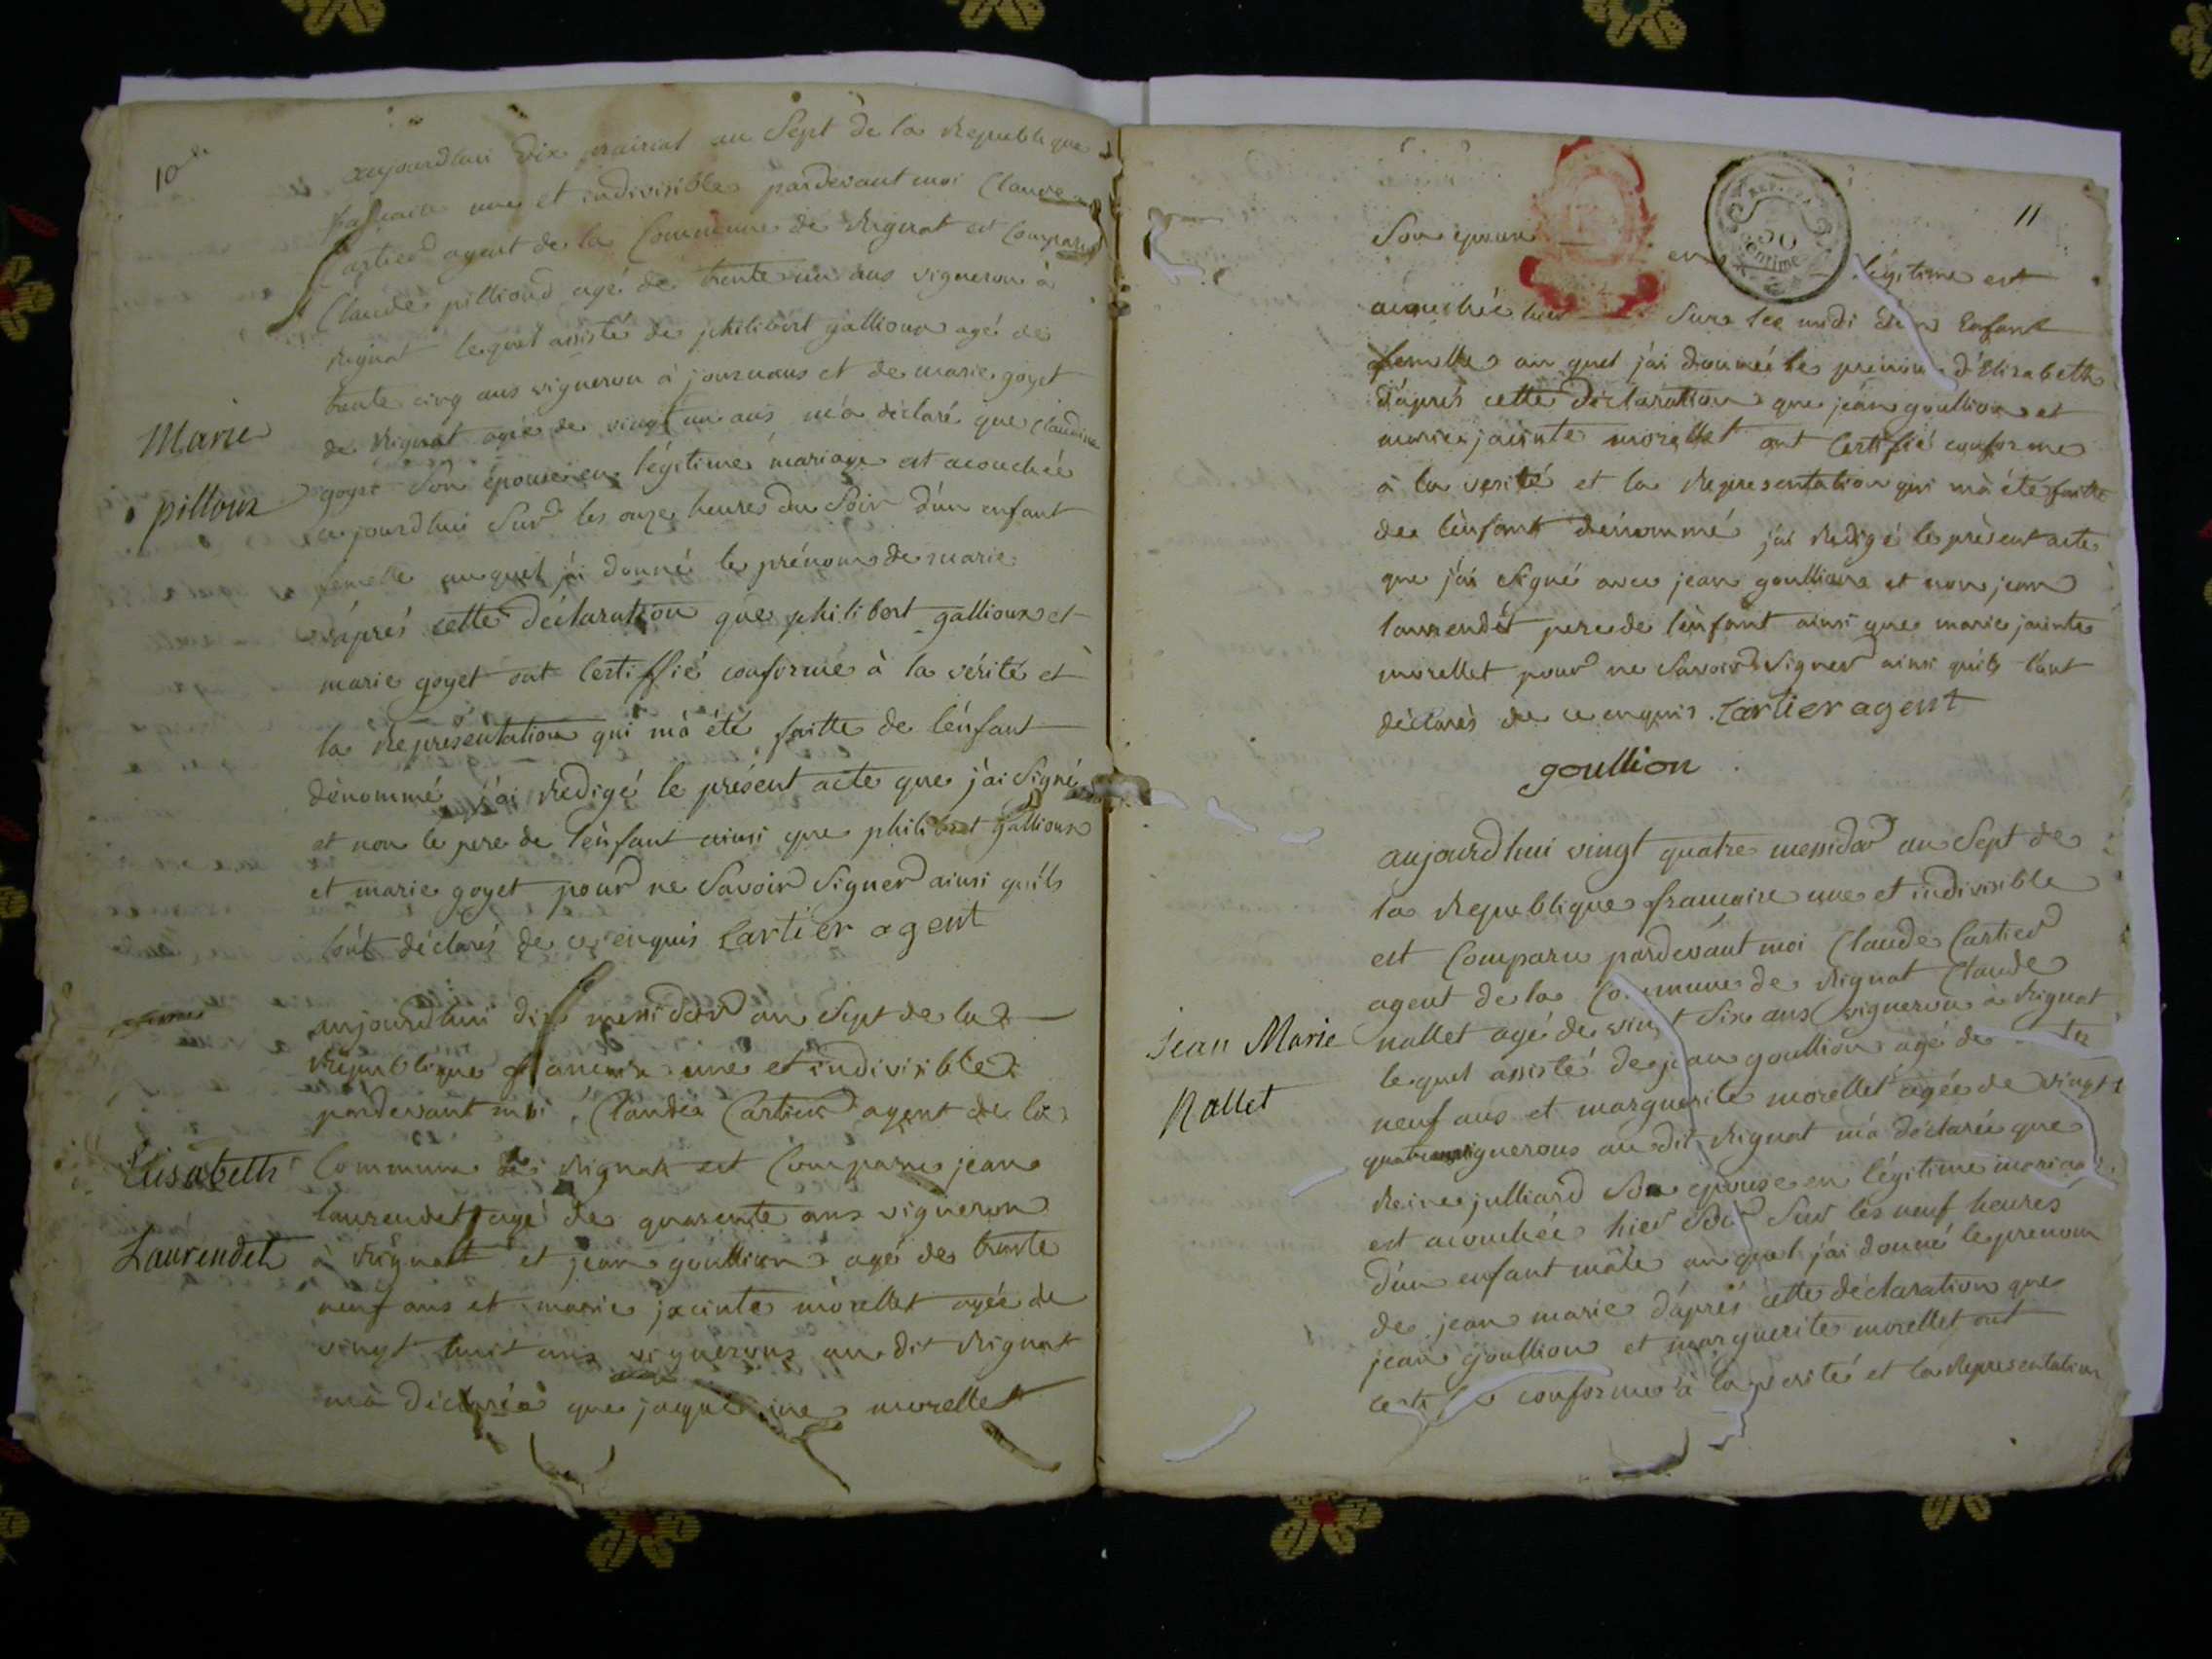 10
aujourdhui dix prairial an Sept de la Republique
francaise une et indivisible pardevant moi Claude
Cartier agent de la Commune de Rignat est Comparu
Claude pillioud agé de trente un ans vigneron à
Rignat lequel assisté de philibert gallioux agé de
trente cinq ans vigneron à journans et de marie goyet
de Rignat agée de vingt un ans m'a déclaré que Claudine
Marie
goyet son épouse en légitime mariage est acouchée
pilloux
aujourdhui Sur les onze heures du Soir d'un enfant
femelle auquel j'ai donné le prénom de marie
d'aprés cette déclaration que philibert gallioux et
marie goyet ont Certiffié conforme à la vérité et
la Représentation qui m'a été faitte de l'enfant
dénommé j'ai Redigé le présent acte que j'ai Signé
et non le pere de l'enfant ainsi que philibert gallioux
et marie goyet pour ne Savoir Signer ainsi qu'ils
l'ont déclarés de ce enquis Cartier agent
aujourdhui dix messidor an Sept de la
Republique francaise une et indivisible
pardevant moi Claude Cartier agent de la
Elisabeth
Commune de Rignat est Comparu jean
laurendet agé de quarente ans vigneron
Laurendet
à Rignat et jean goullion agé de trente
neuf ans et marie jacinte morellet agée de
vingt huit ans vignerons au dit Rignat
m'a déclaré que jacqueline morellet
11
Son épouse en légitime est
acouchée hier Sur les midi d'un Enfant
femelle au quel j'ai donné le prénom d'Elisabeth
d'aprés cette déclaration que jean goullion et
marie jacinte morellet ont Certifié conforme
à la verité et la Representation qui m'a été faitte
de l'enfant dénommé j'ai Redigé le présent acte
que j'ai Signé avec jean goullion et non jean
laurendet pere de l'enfant ainsi que marie jacinte
morellet pour ne Savoir Signer ainsi qu'ils l'ont
déclarés de ce enquis Cartier agent
goullion
aujourdhui vingt quatre messidor an Sept de
la Republique francaise une et indivisible
est Comparu pardevant moi Claude Cartier
agent de la Commune de Rignat Claude
Jean Marie
nallet agé de vingt Six ans vigneron à Rignat
lequel assisté de jean goullion agé de
Nallet
neuf ans et marguerite morellet agée de vingt
quatre vignerons au dit Rignat m'a déclarée que
Reine julliard Son épouse en légitime mariage
est acouchée hier Soir Sur les neuf heures
d'un enfant mâle au quel j'ai donné le prenom
de jean marie d'aprés cette déclaration que
jean goullion et marguerite morellet ont
conforme à la verité et la Representation